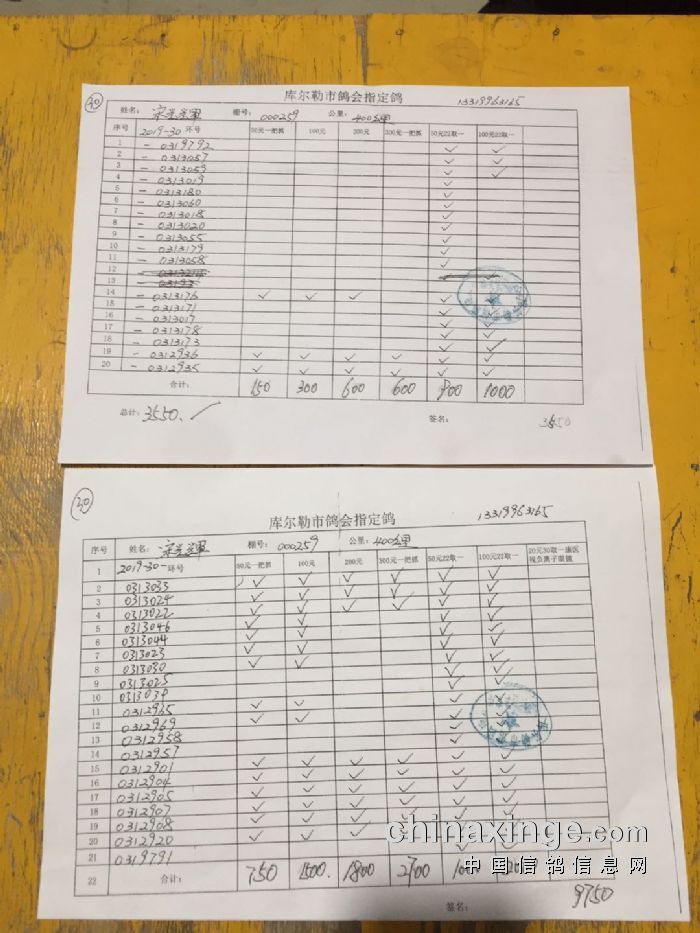 30
库尔勒市鸽会指定鸽
13319963165
姓名: 棚号: 000259 公里: 400公里
序号 2019-30环号 50元一把抓 100元 200元 300元一把抓 50元22取一 100元22取一
1 - 0319792 ✓ ✓
2 - 0313057 ✓ ✓
3 - 0313059 ✓ ✓
4 - 0313019 ✓
5 - 0313180 ✓
6 - 0313060 ✓
7 - 0313018 ✓
8 - 0313020 ✓
9 - 0313055 ✓
10 - 0313179 ✓
11 - 0313058 ✓
12
13
14 - 0313176 ✓ ✓ ✓ ✓ ✓
15 - 0313171 ✓ ✓
16 - 0313017 ✓ ✓
17 - 0313178 ✓ ✓
18 - 0313173 ✓ ✓
19 - 0312936 ✓ ✓ ✓ ✓ ✓ ✓
20 - 0312935 ✓ ✓ ✓ ✓ ✓ ✓
合计: 150 300 600 600 900 1000
总计: 3550. ✓ 签名: 3550
库尔勒市鸽会指定鸽
13319963165
序号 姓名: 棚号: 000259 公里: 400公里
1 2019-30-环号 50元一把抓 100元 200元 300元一把抓 50元22取一 100元22取一
2 0313033 ✓ ✓ ✓ ✓ ✓ ✓
3 0313024 ✓ ✓ ✓ ✓ ✓ ✓
4 0313022 ✓ ✓ ✓ ✓ ✓ ✓
5 0313046 ✓ ✓ ✓ ✓
6 0313044 ✓ ✓ ✓ ✓
7 0313023 ✓ ✓ ✓ ✓
8 0313030 ✓ ✓ ✓ ✓
9 0313025 ✓ ✓
10 031303 ✓ ✓
11 0312965 ✓ ✓ ✓
12 0312969 ✓ ✓ ✓
13 0312958 ✓
14 0312957 ✓
15 0312901 ✓ ✓ ✓ ✓ ✓ ✓
16 0312904 ✓ ✓ ✓ ✓ ✓ ✓
17 0312905 ✓ ✓ ✓ ✓ ✓ ✓
18 0312907 ✓ ✓ ✓ ✓ ✓ ✓
19 0312908 ✓ ✓ ✓ ✓ ✓
20 0312920 ✓ ✓ ✓ ✓
21 0319791
22 合计: 750 1500. 1800 2700
签名: 9750
chinaxinge.com
中国信鸽信息网